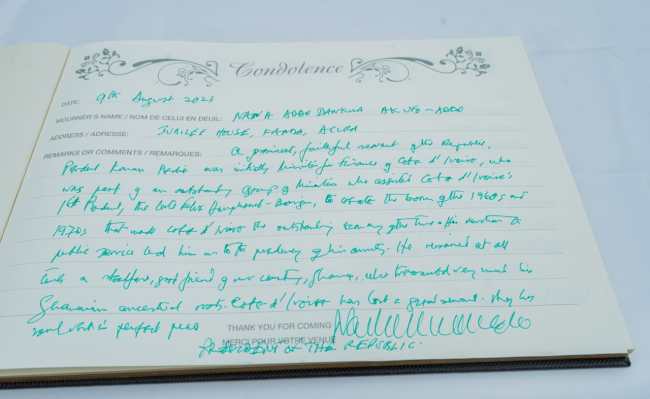 Condolence
DATE: 9th August 2023
MOURNER'S NAME / NOM DE CELUI EN DEUIL: NANA ADDO DANKWA AKUFO-ADDO
ADDRESS / ADRESSE: JUBILEE HOUSE, KANDA, ACCRA
REMARKS OR COMMENTS / REMARQUES: A prominent, faithful servant of the Republic,
President Konan Bédié was initially Minister for Finance of Cote d'Ivoire, who
was part of an outstanding group of ministers who assisted Cote d'Ivoire's
1st President, the late Felix Houphouet-Boigny, to create the boom of the 1960s and
1970s that made Cote d'Ivoire the outstanding economy of the time. His devotion to
public service led him on to the presidency of his country. He remained at all
times a steadfast, good friend of our country, Ghana, who treasured very much his
Ghanaian ancestral roots. Cote d'Ivoire has lost a great servant. May his
soul rest in perfect peace
THANK YOU FOR COMING
MERCI POUR VOTRE VENUE
PRESIDENT OF THE REPUBLIC.